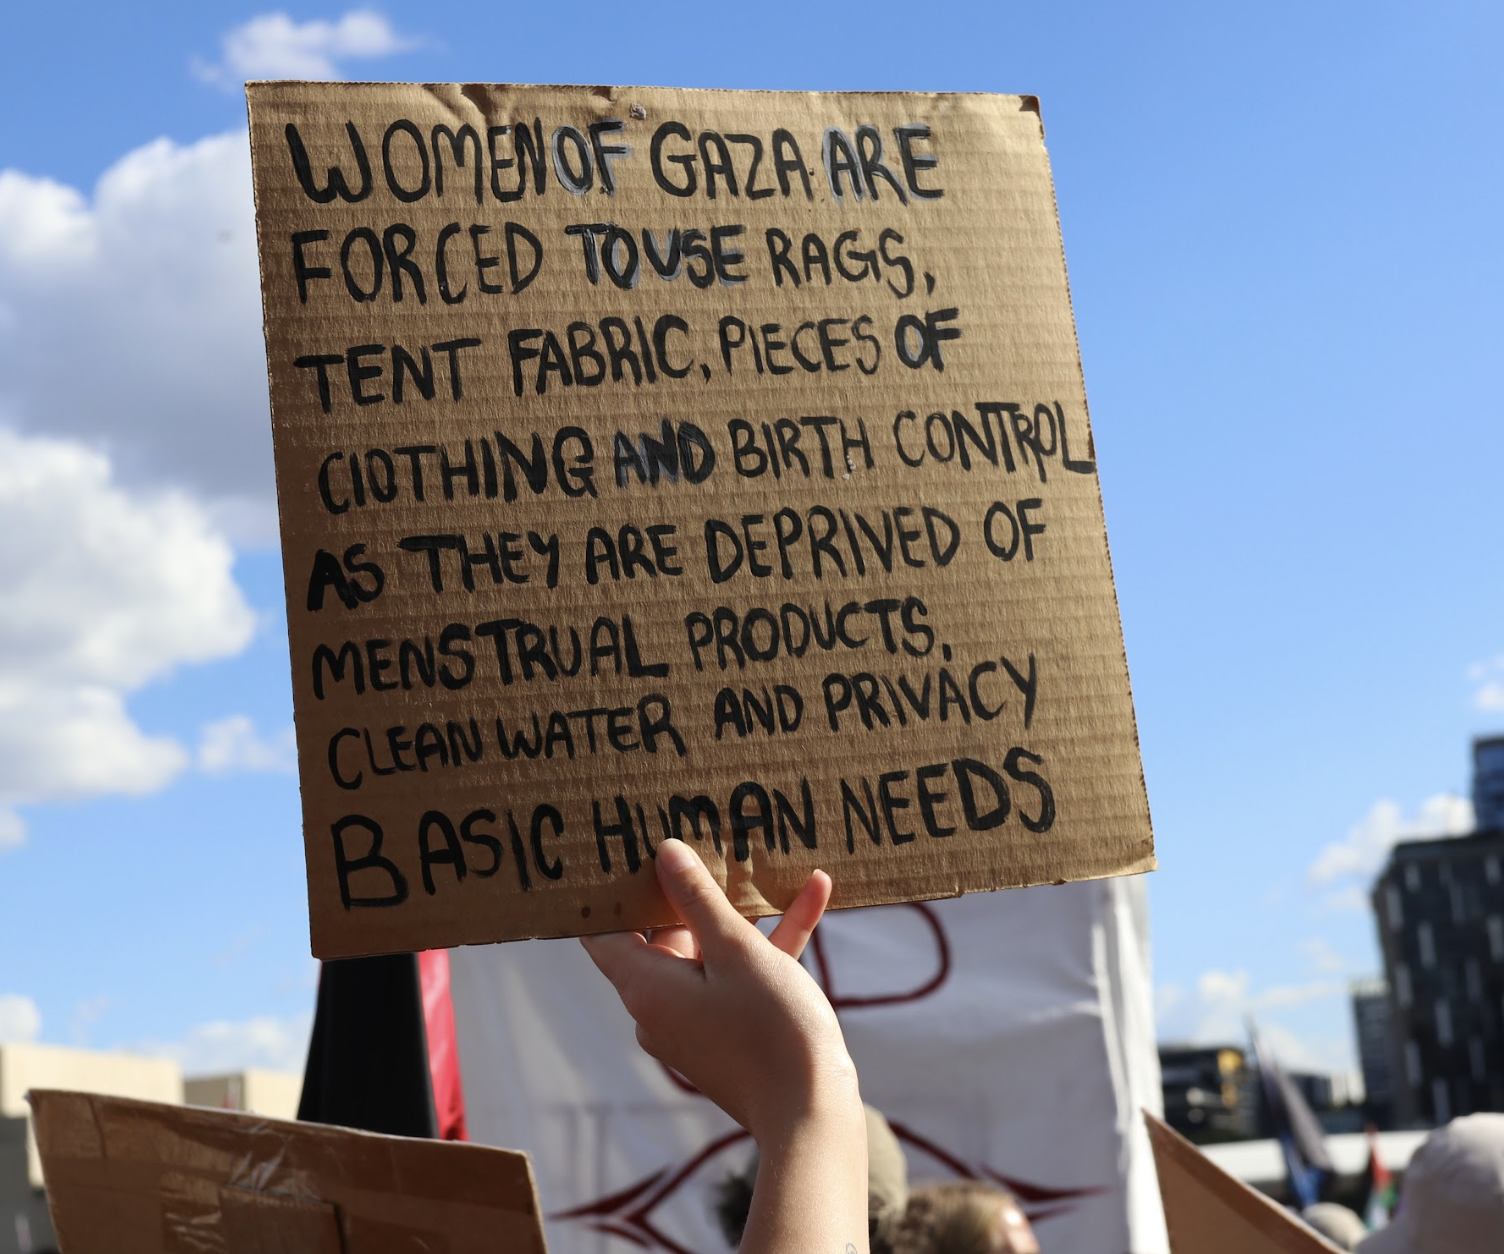 WOMEN OF GAZA ARE
FORCED TO USE RAGS,
TENT FABRIC, PIECES OF
ClOTHING AND BIRTH CONTROL
AS THEY ARE DEPRIVED OF
MENSTRUAL PRODUCTS,
CLEAN WATER AND PRIVACY
BASIC HUMAN NEEDS
D